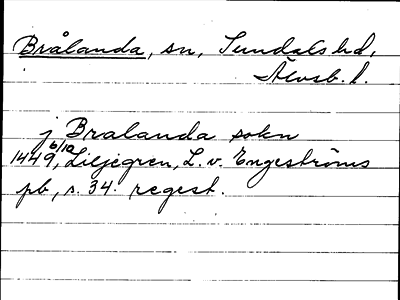 Brålanda, sn, Sundals hd,
Älvsb. l.
j Bralanda sokn
1449 6/10, Liljegren, L. v. Engeströms
pb, s. 34. regest.